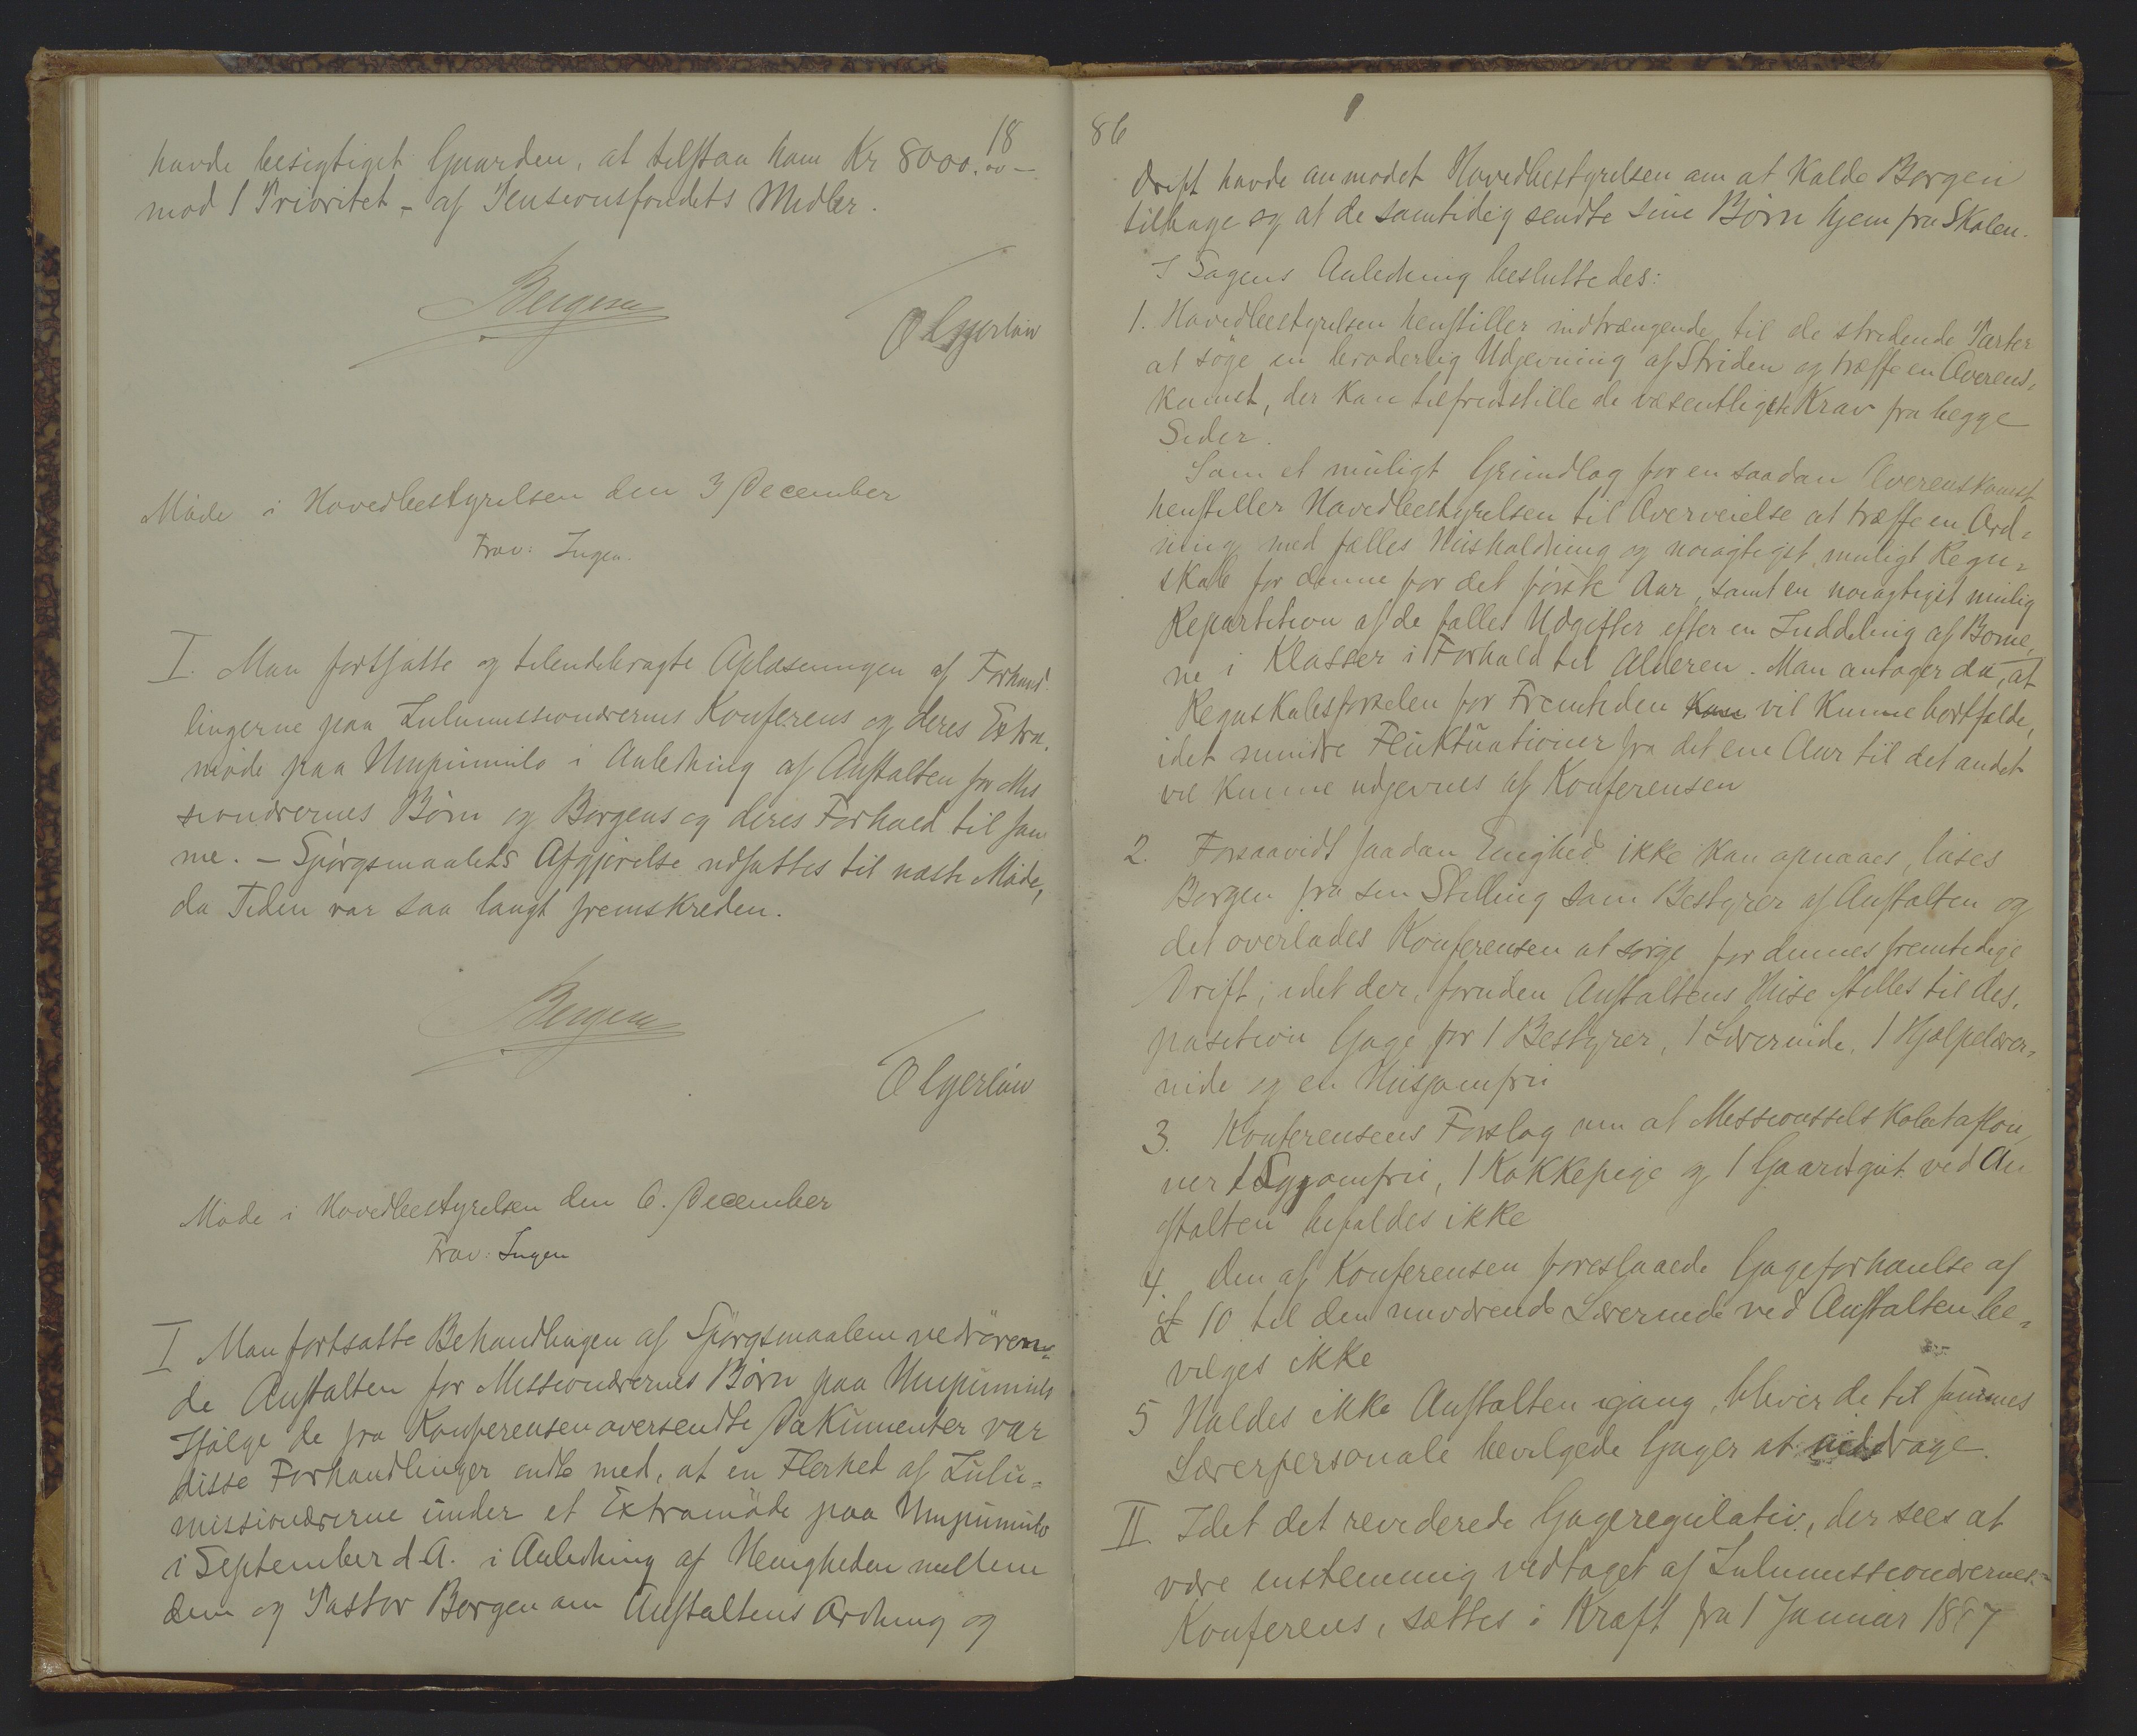 18
havde besigtiget Gaarden, at tilstaa ham Kr 8000.00 —
mod 1 Prioritet - af Pensionsfondets Midler.
Borgen
O Gjerløw
Møde i Hovedbestyrelsen den 3 December
Frav: Ingen.
I. Man fortsatte og tilendebragte Oplæsningen af Forhand-
lingerne paa Zulumissionærernes Konferens og deres Extra-
møde paa Umpumulo i Anledning af Anstalten for Mis
sionærernes Børn og Borgens og deres Forhold til sam
me. — Spørgsmaalets Afgjørelse udsattes til næste Møde,
da Tiden var saa langt fremskreden.
Borgen
O Gjerløw
Møde i Hovedbestyrelsen den 6. December
Frav: Ingen
I Man fortsatte Behandlingen af Spørgsmaalene vedrøren-
de Anstalten for Missionærernes Børn paa Umpumulo
Ifølge de fra Konferensen oversendte Dokumenter var
disse Forhandlinger endte med, at en Flerhed af Zulu-
missionærerne under et Extramøde paa Umpumulo
i September d.A. i Anledning af Uenigheden mellem
dem og Pastor Borgen om Anstaltens Ordning og
86
Drift havde anmodet Hovedbestyrelsen om at kalde Borgen
tilbage og at de samtidig sendte sine Børn hjem fra Skolen.
I Sagens Anledning besluttedes:
1. Hovedbestyrelsen henstiller indtrængende til de stridende Parter
at søge en broderlig Udjevning af Striden og træffe en Overens-
komst, der kan tilfredsstille de væsentligste Krav fra begge
Sider.
Som et muligt Grundlag for en saadan Overenskomst
henstiller Hovedbestyrelsen til Overveielse at træffe en Ord-
ning med fælles Husholdning og nøiagtigst muligt Regn-
skab for denne for det første Aar, samt en nøiagtigst mulig
Repartition af de fælles Udgifter efter en Inddeling af Børne-
ne i Klasser i Forhold til Alderen. Man antager da, at
Regnskabsførselen for Fremtiden kan vil kunne bortfalde,
idet mindre Fluktuationer fra det ene Aar til det andet
vil kunne udjevnes af Konferensen
2. Forsaavidt saadan Enighed ikke kan opnaaes, løses
Borgen fra sin Stilling som Bestyrer af Anstalten og
det overlades Konferensen at sørge for dennes fremtidige
Drift, idet der, foruden Anstaltens Huse stilles til dis-
position Gage for 1 Bestyrer, 1 Lærerinde, 1 Hjælpelærer-
inde og en Husjomfru
3. Konferensens Forslag om at Missionsselskabet afløn-
ner 1 Syjomfru, 1 Kokkepige og 1 Gaardsgut ved An
stalten bifaldes ikke
4. Den af Konferensen foreslaaede Gageforhøielse af
£ 10 til den nuværende Lærerinde ved Anstalten be-
vilges ikke
5 Holdes ikke Anstalten igang, bliver de til sammes
Lærerpersonale bevilgede Gager at inddrage.
II. Idet det reviderede Gageregulativ, der sees at
være enstemmig vedtaget af Zulumissionærernes
Konferens, sættes i Kraft fra 1 Januar 1887